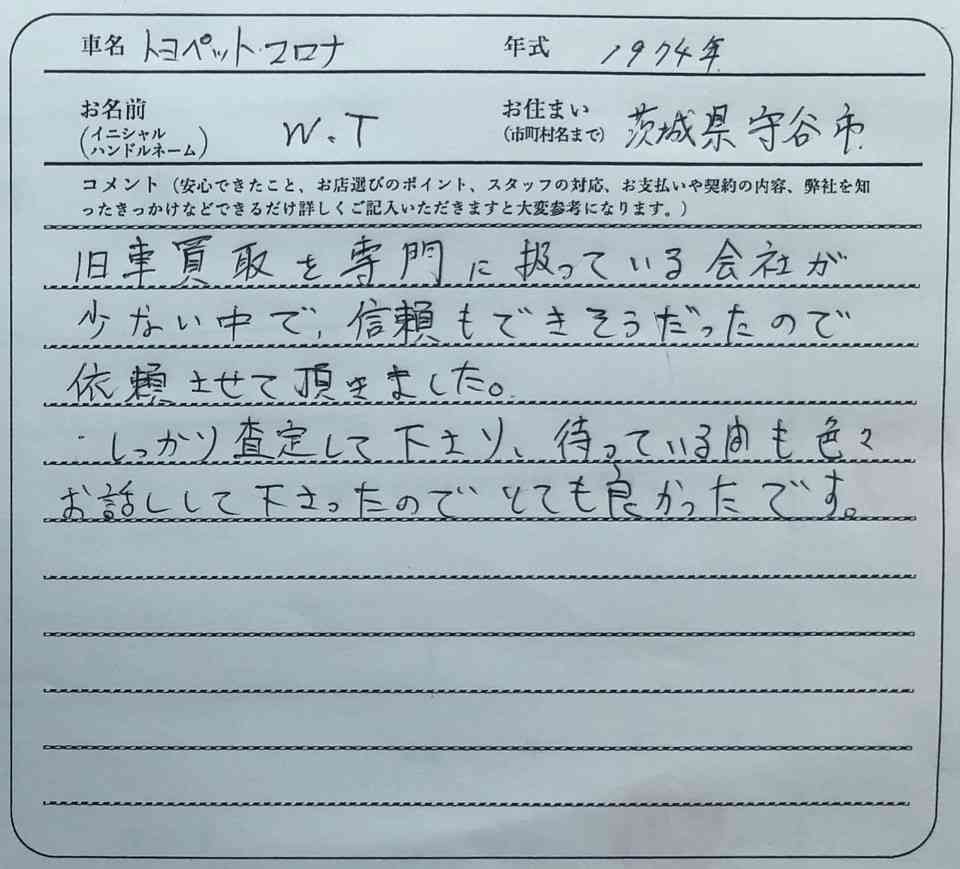 車名 トヨペット・コロナ 年式 1974年
お名前 (イニシャル ハンドルネーム) W.T お住まい (市町村名まで) 茨城県守谷市
コメント（安心できたこと、お店選びのポイント、スタッフの対応、お支払いや契約の内容、弊社を知
ったきっかけなどできるだけ詳しくご記入いただきますと大変参考になります。）
旧車買取を専門に扱っている会社が
少ない中で、信頼もできそうだったので
依頼させて頂きました。
・しっかり査定して下さり、待っている間も色々
お話しして下さったのでとても良かったです。